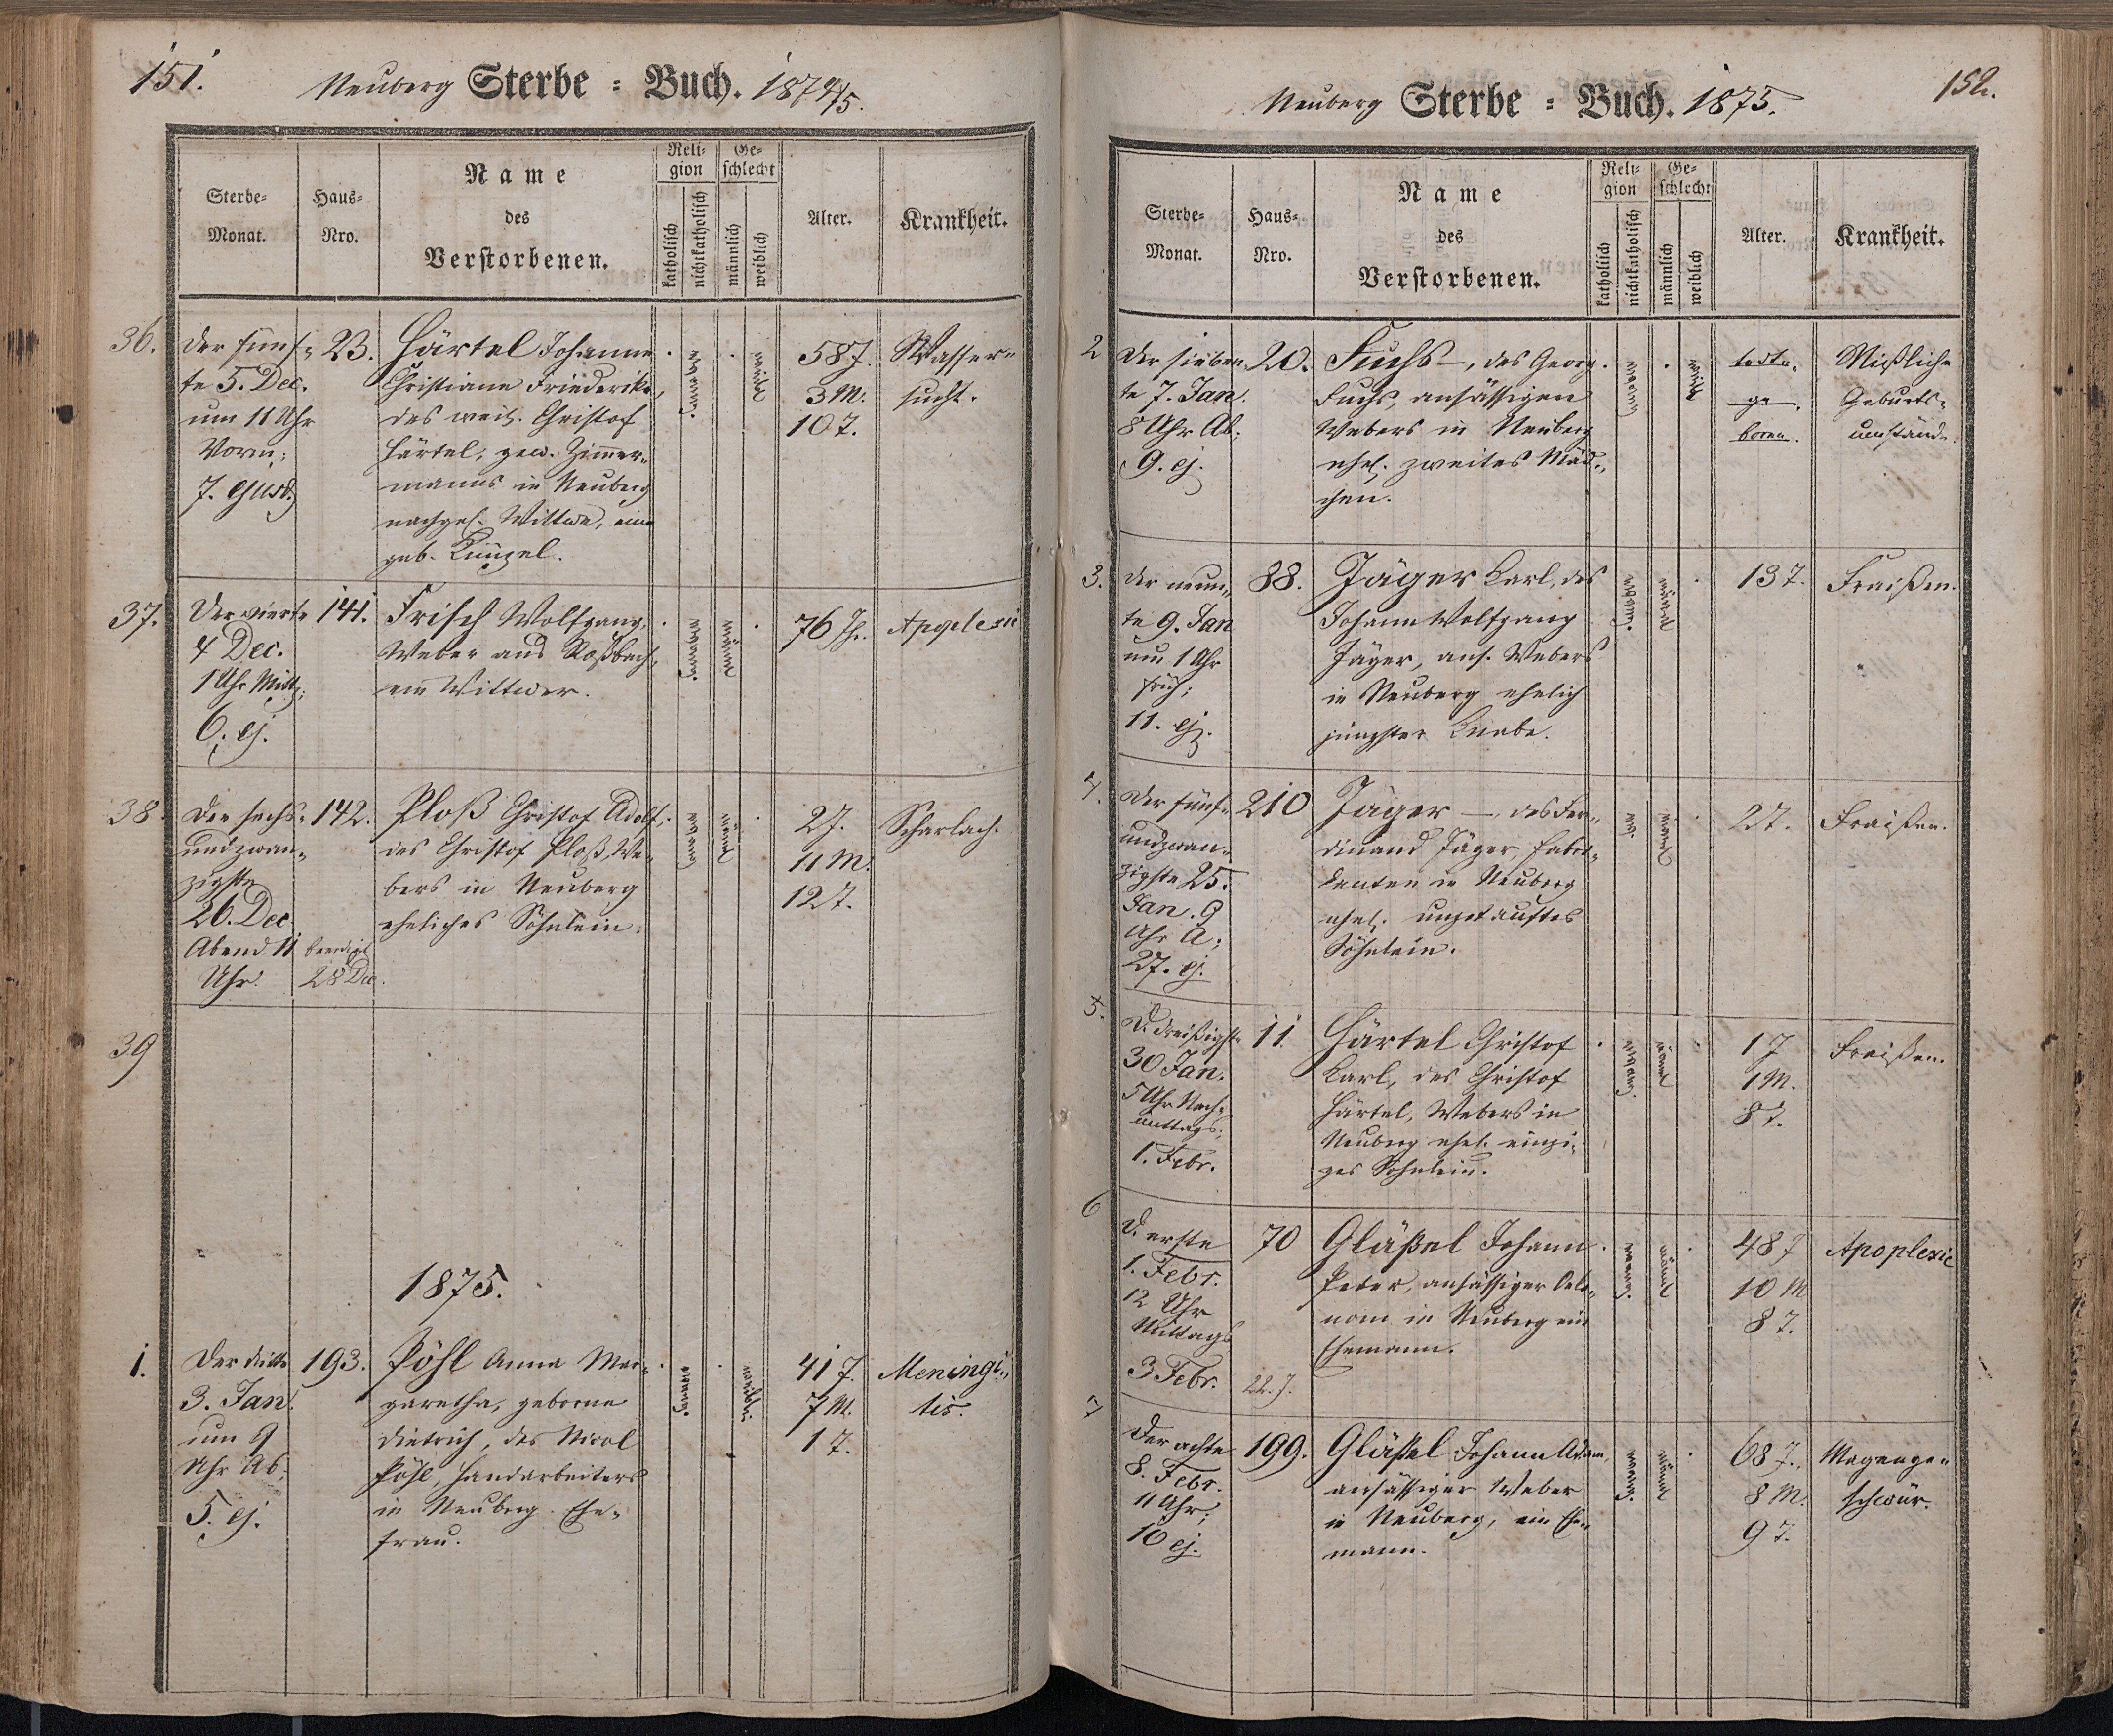 151.
Neuberg Sterbe = Buch. 1874/5.
Sterbe-
Monat.
Haus-
Nro.
Name
des
Verstorbenen.
Reli-
gion
katholisch
nichtkatholisch
Ge-
schlecht
männlich
weiblich
Alter.
Krankheit.
36.
Der fünf-
te 5. Dec.
um 11 Uhr
Vorm;
7. ejusd.
23.
Härtel Johanne
Christiane Friederike,
des weil. Christof
Härtel, gew. Zimmer-
manns in Neuberg
nachgel. Wittwe, eine
geb. Künzel.
evang.
weibl.
58 J.
3 M.
10 T.
Wasser-
sucht.
37.
Der vierte
4 Dec.
1 Uhr Mittg;
6. ej.
141.
Frisch Wolfgang,
Weber aus Roßbach,
ein Wittwer.
76 Jh.
Apoplexie
38.
Der sechs-
undzwan-
zigste
26. Dec.
Abend 11
Uhr.
142.
beerdigt
28 Dec.
Ploß Christof Adolf,
des Christof Ploß, We-
bers in Neuberg
eheliches Söhnlein.
2 J.
11 M.
12 T.
Scharlach.
39
1875.
1.
Der dritte
3. Jan.
um 9
Uhr Ab;
5. ej.
193.
Pöhl Anna Mar-
garetha, geborne
Dietrich, des Nicol
Pöhl, Handarbeiters
in Neuberg Ehe-
frau.
41 J.
7 M.
1 T.
Meningi-
tis.
152.
Neuberg Sterbe = Buch. 1875.
Sterbe-
Monat.
Haus-
Nro.
Name
des
Verstorbenen.
Reli-
gion
katholisch
nichtkatholisch
Ge-
schlecht
männlich
weiblich
Alter.
Krankheit.
2
Der sieben-
te 7. Jan.
8 Uhr Ab;
9. ej.
20.
Fuchs —, des Georg
Fuchs, ansässigen
Webers in Neuberg
ehel. zweites Mäd-
chen.
weibl.
todt-
ge-
boren.
Mißliche
Geburts-
umstände.
3.
Der neun-
te 9. Jan
um 1 Uhr
früh;
11. ej.
88.
Jäger Karl, des
Johann Wolfgang
Jäger, ans. Webers
in Neuberg ehelich
jüngster Knabe.
13 T.
Fraißen.
4.
Der fünf-
undzwan-
zigste 25.
Jan. 9
Uhr A;
27. ej.
210
Jäger —, des Fer-
dinand Jäger, Fabri-
kanten in Neuberg
ehel. ungetauftes
Söhnlein.
2 T.
Fraißen.
5.
D. dreißigste
30 Jan.
5 Uhr Nach-
mittags;
1. Febr.
11.
Härtel Christof
Karl, des Christof
Härtel, Webers in
Neuberg ehel. einzi-
ges Söhnlein.
1 J
1 M.
8 T.
Fraißen.
6
D. erste
1. Febr.
12 Uhr
Mittags
3 Febr.
70
22. J.
Gläßel Johann
Peter, ansässiger Oeko-
nom in Neuberg ein
Ehemann.
48 J
10 M
8 T.
Apoplexie
7
Der achte
8. Febr.
11 Uhr;
10 ej.
199.
Gläßel Johann Adam,
ansässiger Weber
in Neuberg, ein Ehe-
mann.
68 J.
8 M.
9 T.
Magenge-
schwür.